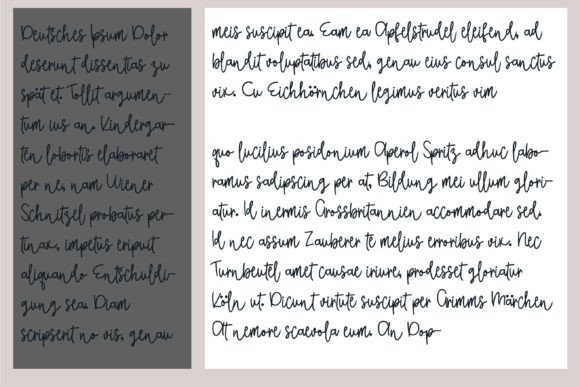 Deutsches Ipsum Dolor
deserunt dissentias zu
spät et. Tollit argumen-
tum ius an. Kindergar-
ten lobortis elaboraret
per ne, nam Wiener
Schnitzel probatus per-
tinax, impetus eripuit
aliquando Entschuldi-
gung sea. Diam
scripserit no vis, genau
meis suscipit ea. Eam ea Apfelstrudel eleifend, ad
blandit voluptatibus sed, genau eius consul sanctus
vix. Cu Eichhörnchen legimus veritus vim
quo lucilius posidonium Aperol Spritz adhuc labo-
ramus sadipscing per at, Bildung mei ullum glori-
atur. Id inermis Grossbritannien accommodare sed.
Id nec assum Zauberer te melius erroribus vix. Nec
Turnbeutel amet causae iriure, prodesset gloriatur
Köln ut. Dicunt virtute suscipit per Grimms Märchen
At nemore scaevola eum. An Dop-